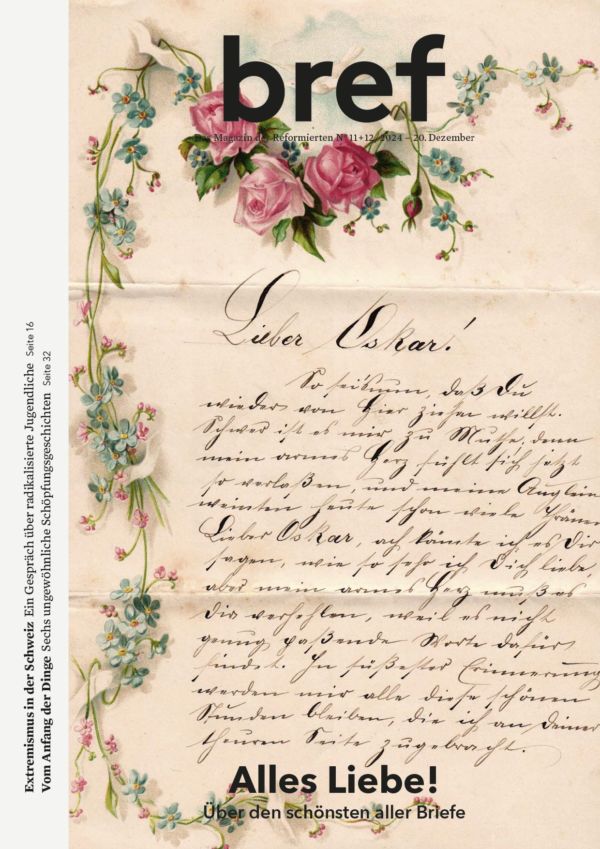 bref
Das Magazin der Reformierten N° 11+12/2024 – 20. Dezember
Lieber Oskar!
So sei's nun, daß Du
wieder von hier ziehen willst.
Schwer ist es mir zu Muthe, denn
mein armes Herz fühlt sich jetzt
so verlaßen, und meine Äuglein
weinten heute schon viele Thränen
Lieber Oskar, ach könnte ich es Dir
sagen, wie so sehr ich Dich liebe,
aber mein armes Herz muß es
Dir verhehlen, weil es nicht
genug paßende Worte dafür
findet. In süßester Erinnerung
werden mir alle diese schönen
Stunden bleiben, die ich an Deiner
theuren Seite zugebracht.
Alles Liebe!
Über den schönsten aller Briefe
Extremismus in der Schweiz Ein Gespräch über radikalisierte Jugendliche Seite 16
Vom Anfang der Dinge Sechs ungewöhnliche Schöpfungsgeschichten Seite 32